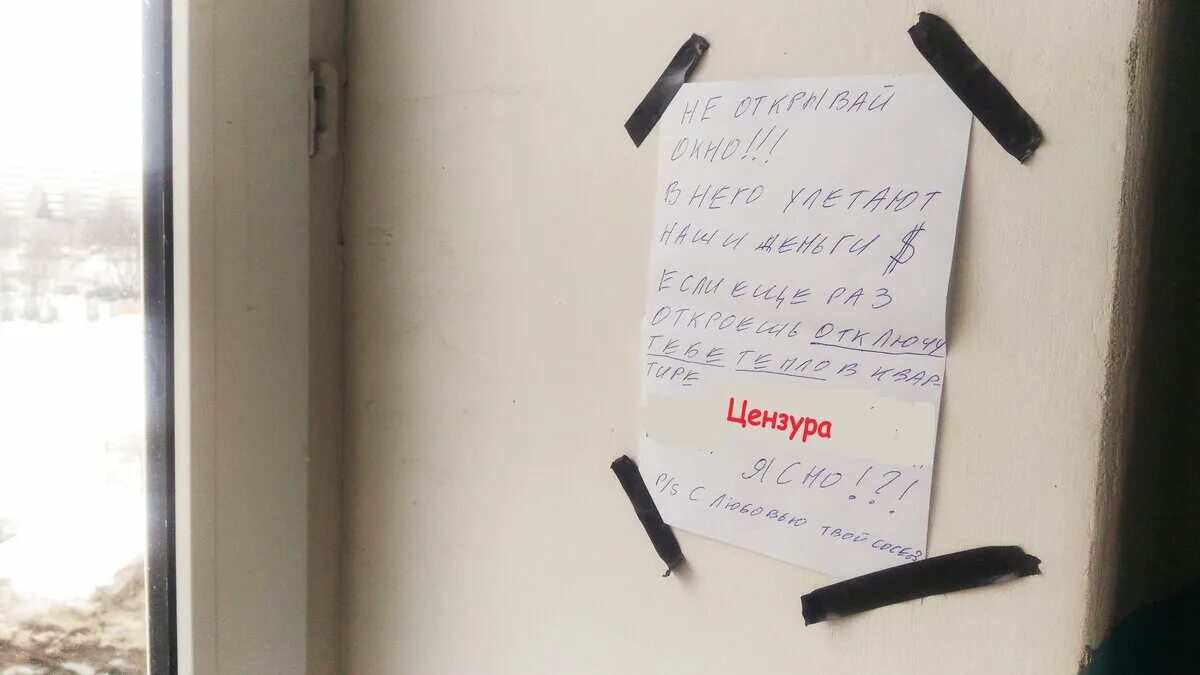 НЕ ОТКРЫВАЙ
ОКНО!!!
В НЕГО УЛЕТАЮТ
НАШИ ДЕНЬГИ $
ЕСЛИ ЕЩЕ РАЗ
ОТКРОЕШЬ ОТКЛЮЧУ
ТЕБЕ ТЕПЛО В КВАР-
ТИРЕ
Цензура
ЯСНО!?!
P/s С ЛЮБОВЬЮ ТВОЙ СОСЕД